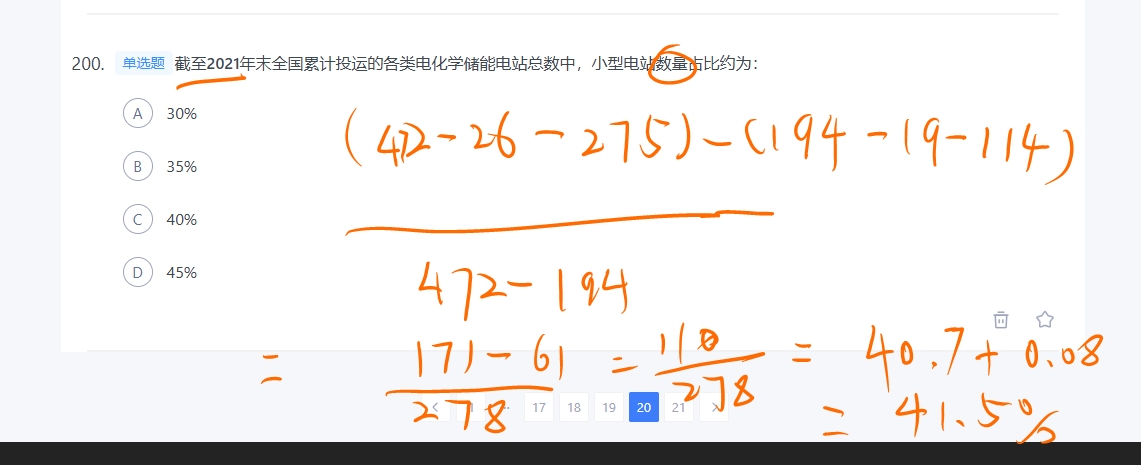 200. 单选题 截至2021年末全国累计投运的各类电化学储能电站总数中，小型电站数量占比约为：
A 30%
B 35%
C 40%
D 45%
(472-26-275)-(194-19-114)
472-194
= 171-61 = 110 = 40.7+0.08
278 278
= 41.5%
17 18 19 20 21